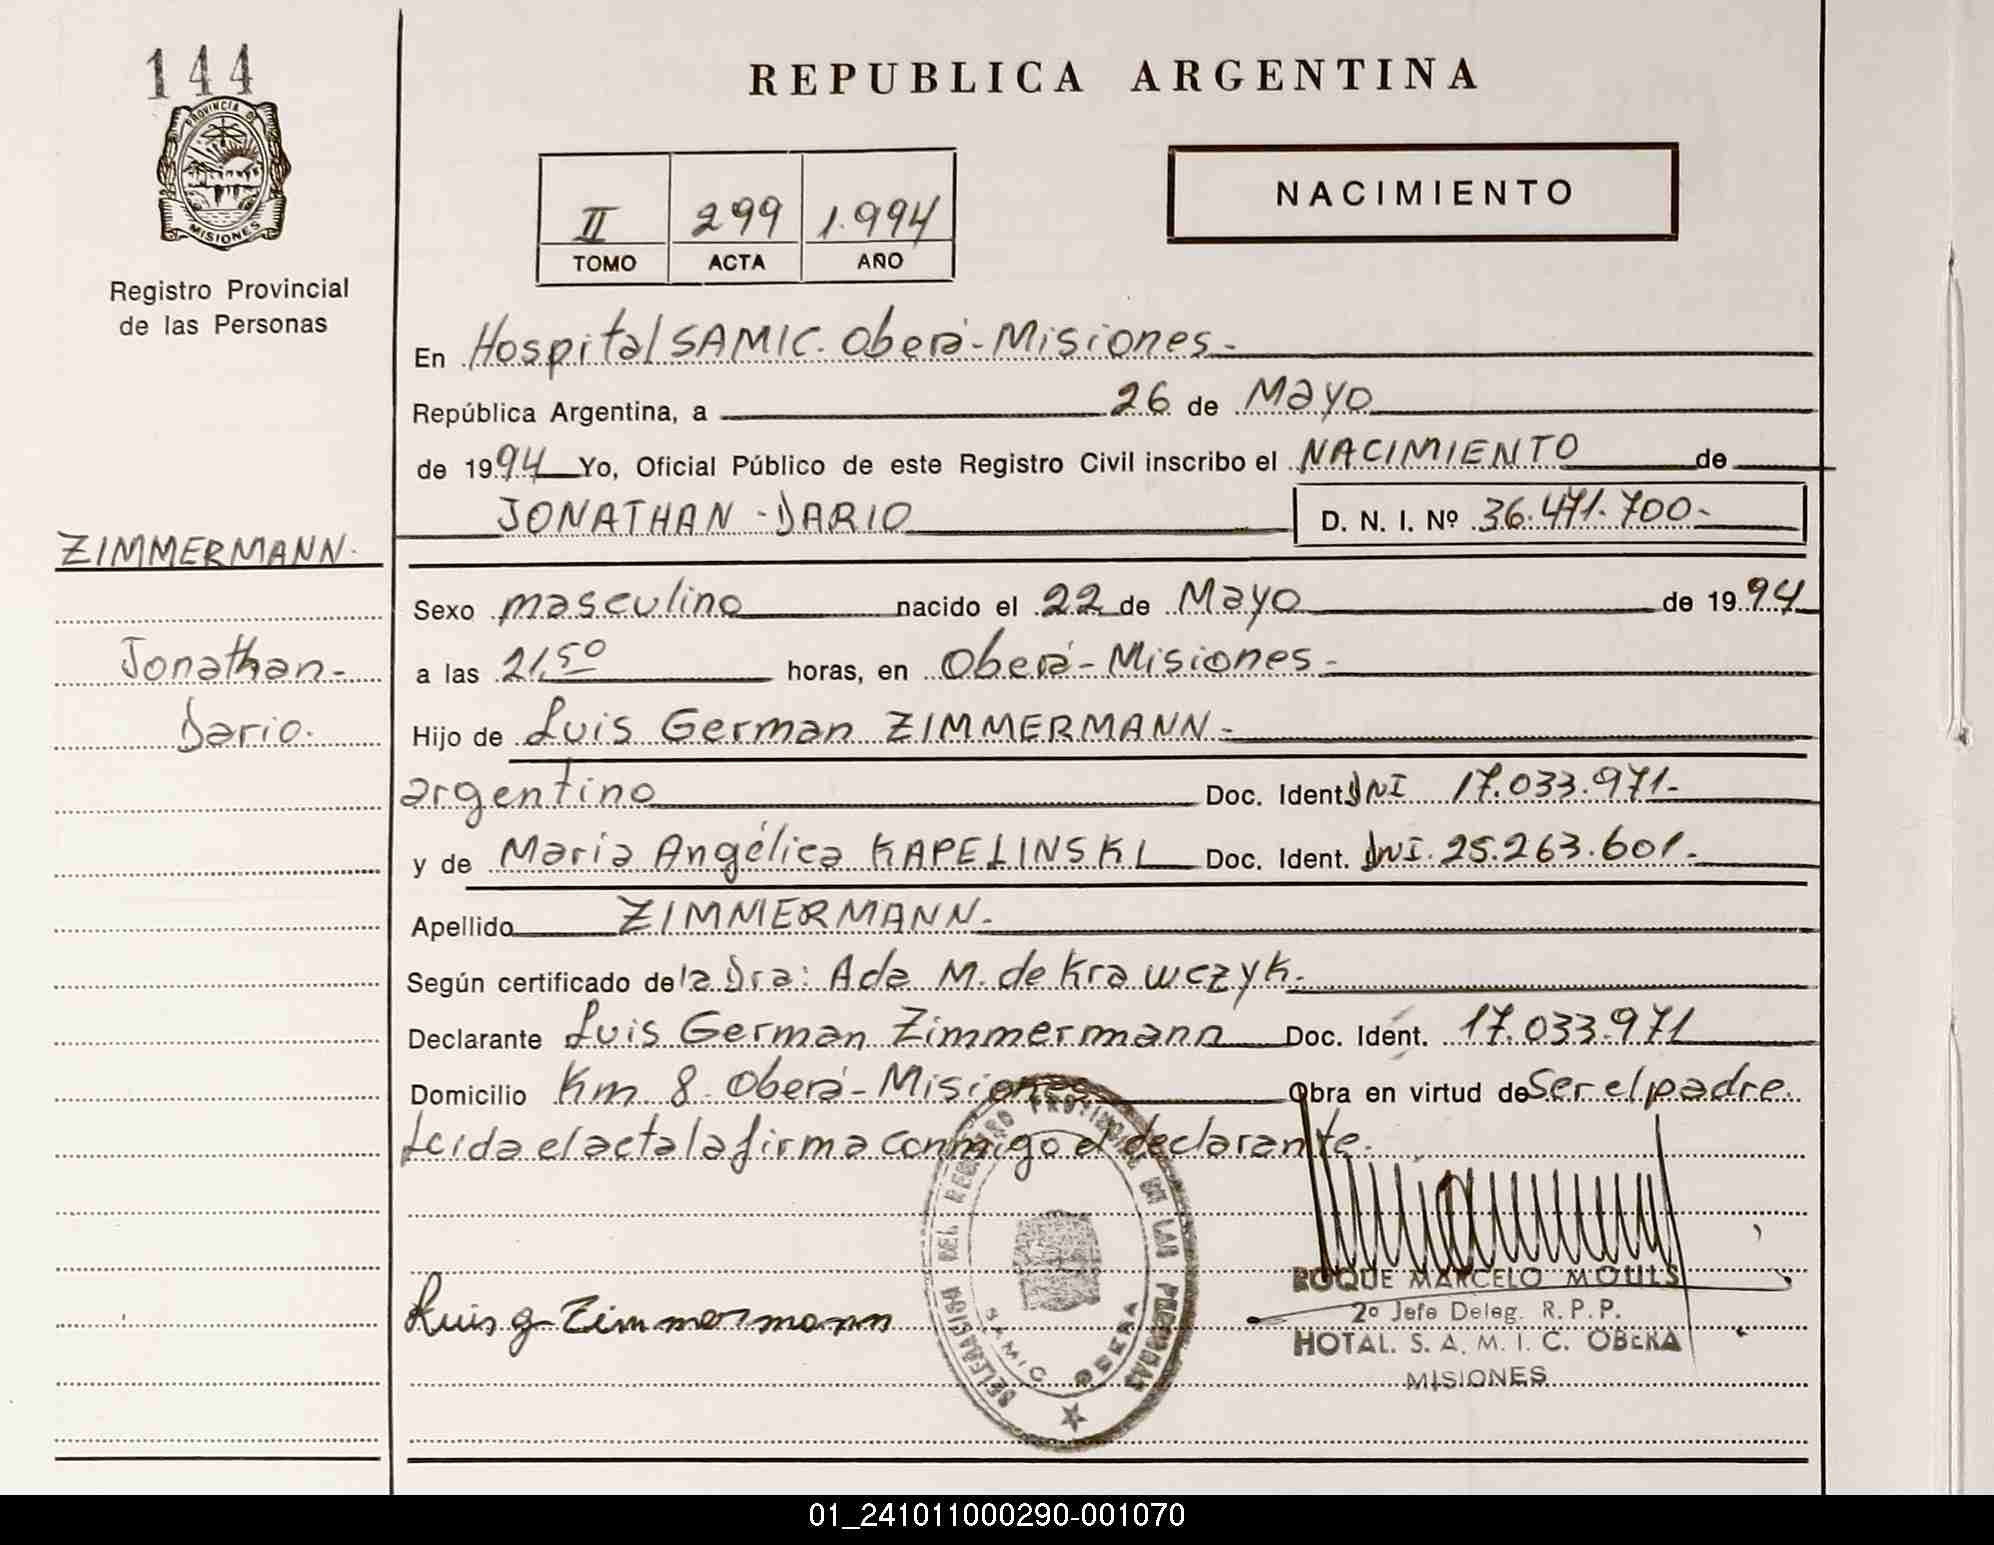 144
PROVINCIA DE
MISIONES
Registro Provincial
de las Personas
REPUBLICA ARGENTINA
II 299 1.994
TOMO ACTA AÑO
NACIMIENTO
En Hospital SAMIC. Oberá-Misiones-
República Argentina, a 26 de Mayo
de 1994 Yo, Oficial Público de este Registro Civil inscribo el NACIMIENTO de
JONATHAN-DARIO D. N. I. Nº 36.471.700-
ZIMMERMANN-
Sexo masculino nacido el 22 de Mayo de 1994
Jonathan-
a las 21,50 horas, en Oberá-Misiones-
Dario.
Hijo de Luis German ZIMMERMANN-
argentino Doc. Ident. DNI 17.033.971-
y de María Angélica KAPELINSKI Doc. Ident. DNI. 25.263.601-
Apellido ZIMMERMANN-
Según certificado de la Dra: Ada M. de Krawczyk.
Declarante Luis German Zimmermann Doc. Ident. 17.033.971
Domicilio Km 8 Oberá-Misiones Obra en virtud de Ser el padre.
Leida el acta la firma conmigo el declarante.
DELEGACION DEL REGISTRO PROVINCIAL DE LAS PERSONAS
SAMIC OBERA
Luis g Zimmermann
ROQUE MARCELO MOULS
2º Jefe Deleg. R. P. P.
HOTAL. S. A. M. I. C. OBERA
MISIONES
01_241011000290-001070